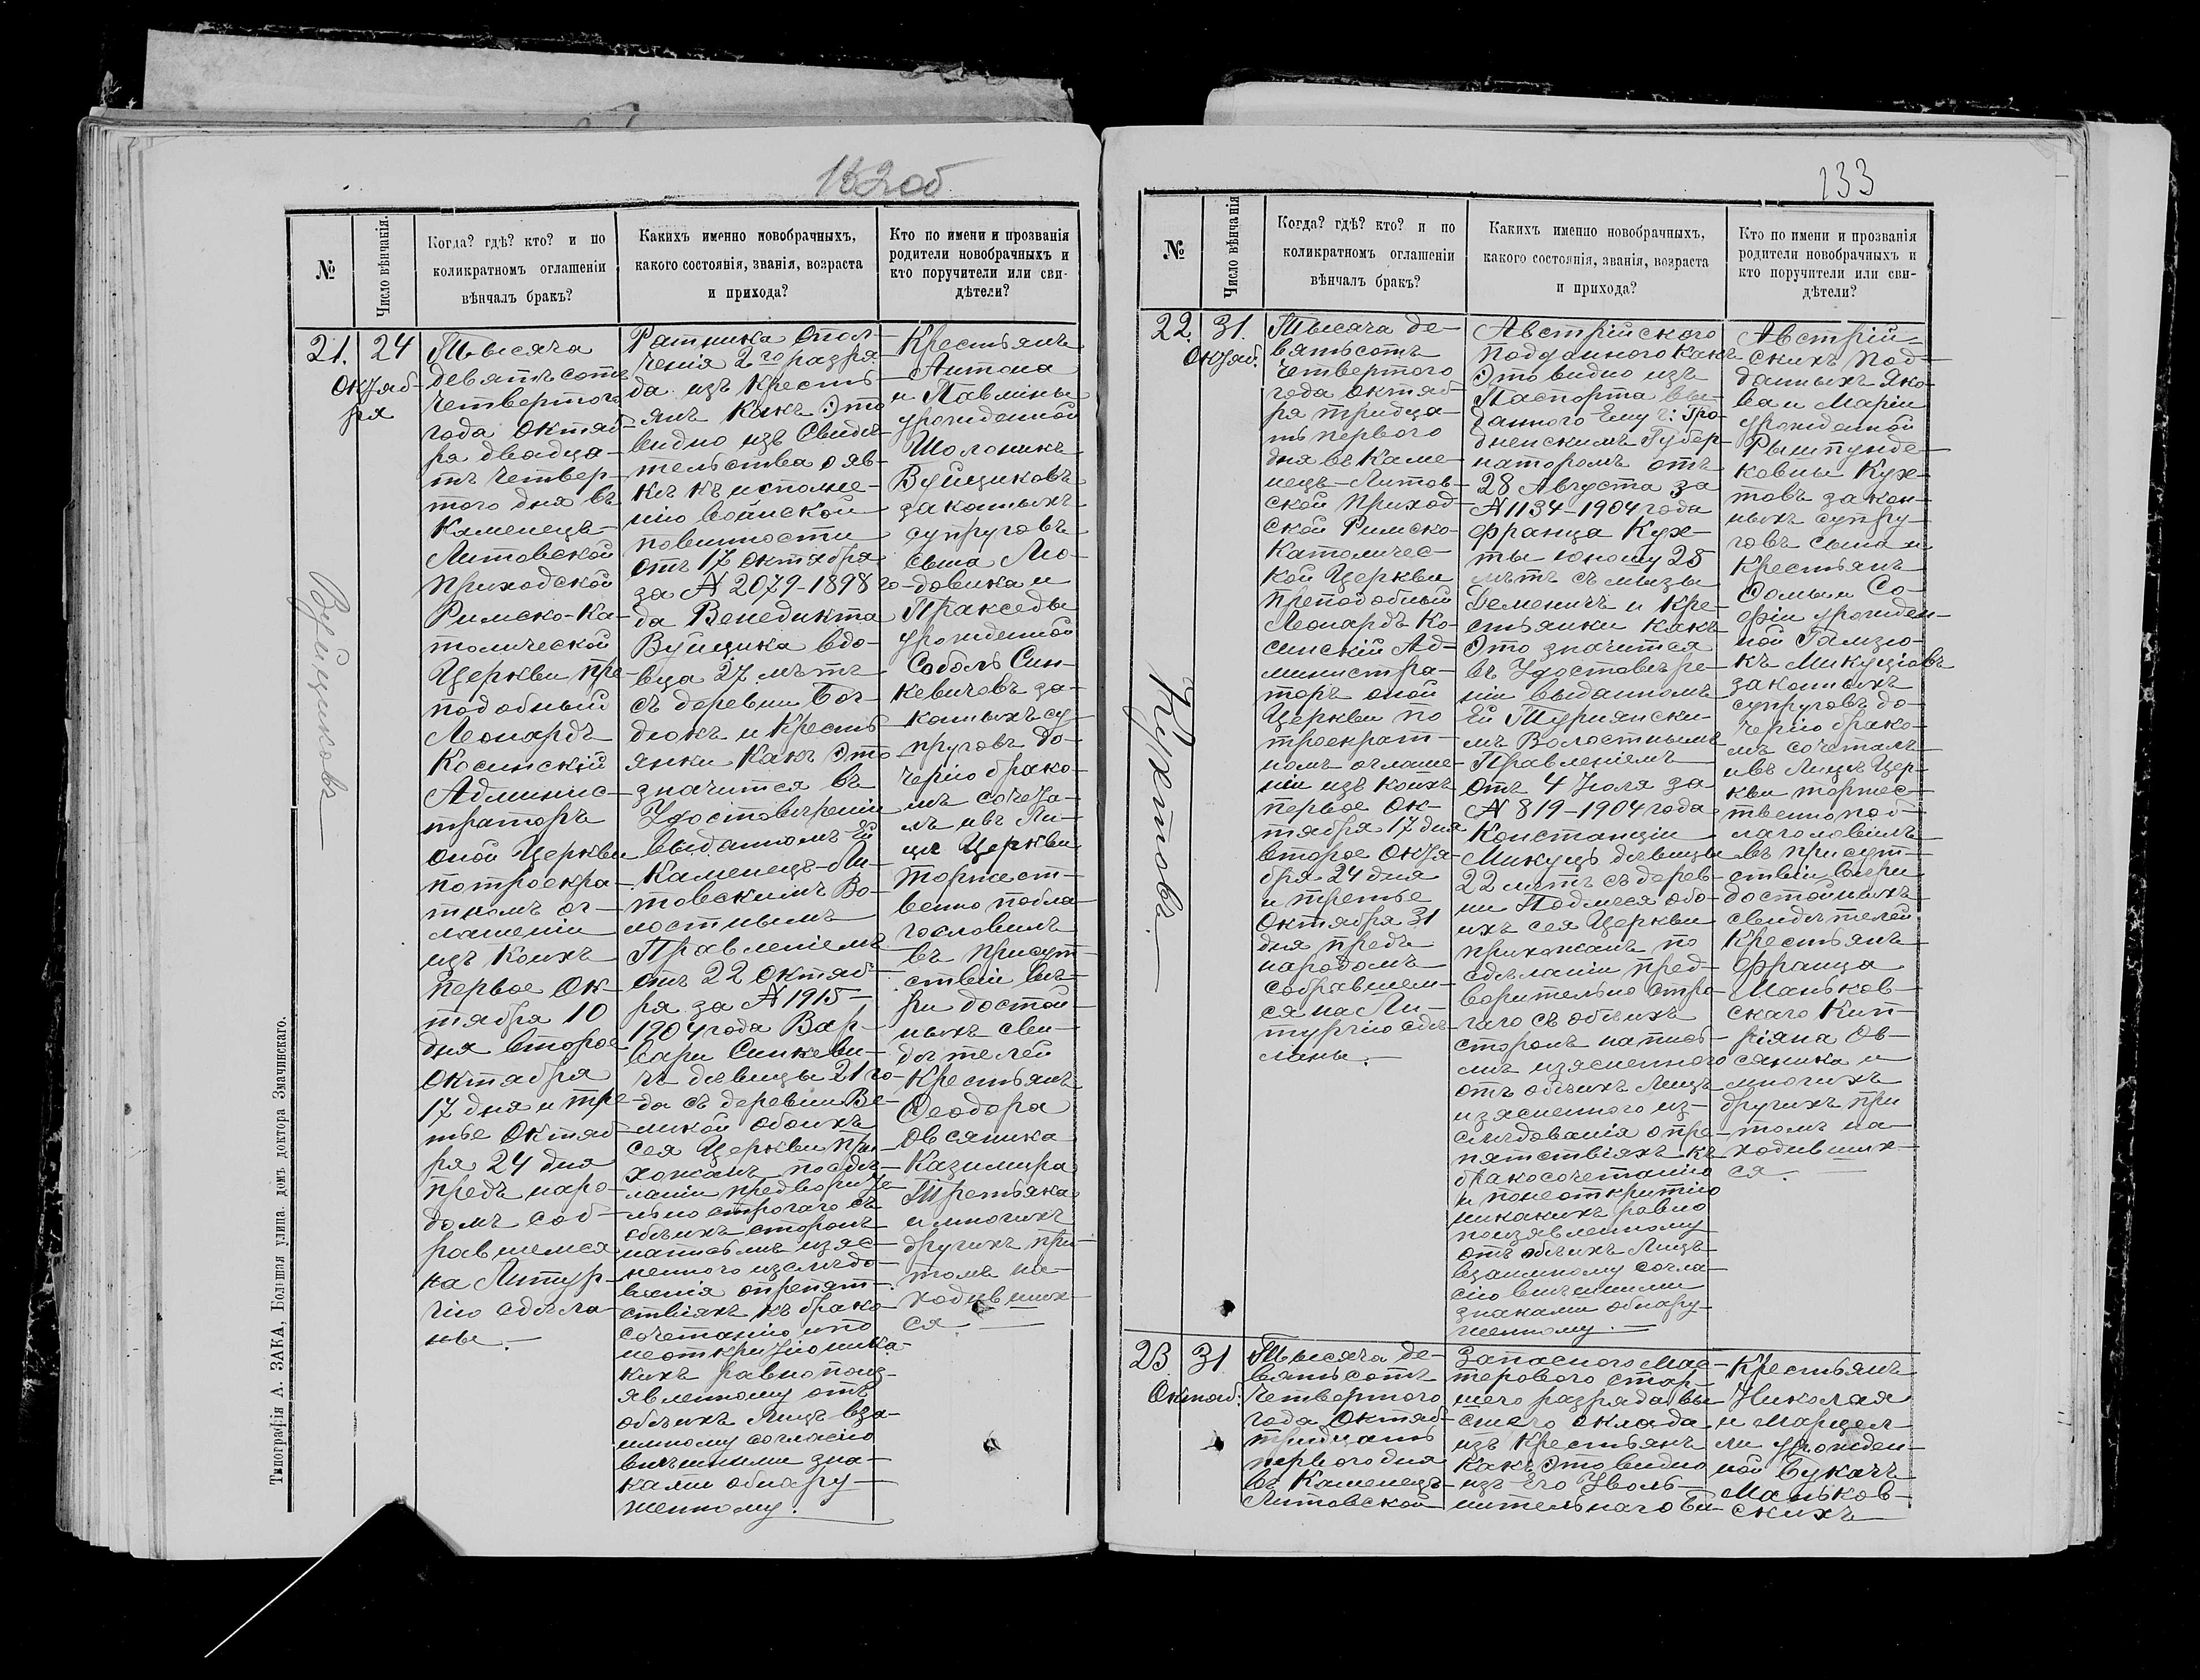 132об
№
Число вѣнчанія.
Когда? гдѣ? кто? и по
коликратномъ оглашеніи
вѣнчалъ бракъ?
Какихъ именно новобрачныхъ,
какого состоянія, званія, возраста
и прихода?
Кто по имени и прозванія
родители новобрачныхъ и
кто поручители или сви-
дѣтели?
21.
24
Октяб-
ря
Вуйщиковъ
Тысяча
девятьсотъ
четвертого
года Октяб-
ря двадца-
ть четвер-
того дня въ
Каменецъ-
Литовской
приходской
Римско-Ка-
толической
Церкви пре-
подобный
Леонардъ
Косинскій
Админис-
траторъ
оной Церкви
по троекра-
тномъ ог-
лашеніи
изъ коихъ
первое Ок-
тября 10
дня второе
Октября
17 дня и тре-
тье Октяб-
ря 24 дня
предъ наро-
домъ соб-
равшемся
на Литур-
гію сдѣла-
ны.-
Ратника Опол-
ченія 2го разря-
да изъ кресть-
янъ какъ это
видно изъ Свидѣ-
тельства о яв-
кѣ къ исполне-
нію воинской
повинности
отъ 17 Октября
за № 2079-1898 го-
да Венедикта
Вуйщика вдо-
вца 27 лѣтъ
съ деревни Бог-
дюкъ и кресть-
янки какъ это
значится въ
Удостовѣреніи
выданномъ Ей
Каменецъ-Ли-
товскимъ Во-
лостнымъ
Правленіемъ
отъ 22 Октяб-
ря за № 1915-
1904 года Вар-
вары Синкеви-
чъ дѣвицы 21 го-
да съ деревни Ве-
ликой обоихъ
сея Церкви при-
хожанъ по сдѣ-
ланіи предворите-
льно строгаго съ
обѣихъ сторонъ
написьмѣ изяс-
неннаго изслѣдо-
ванія опрепят-
ствіяхъ къ брако-
сочетанію и по
неоткрытію ника-
кихъ равно поиз-
явленному отъ
обѣихъ лицъ вза-
имному согласію
внѣшними зна-
ками обнару-
женному.
Крестьянъ
Антона
и Павлины
урожденной
Шолоникъ
Вуйщиковъ
законныхъ
супруговъ
сына Лю-
довика и
Праксeды
урожденной
Соболь Син-
кевичовъ за-
конныхъ су-
пруговъ до-
черію брако-
мъ сочета-
лъ ивъ Ли-
цѣ Церкви
торжест-
венно побла-
гословилъ
въ присут-
ствіи вѣ-
ры достой-
ныхъ сви-
дѣтелей
Крестьянъ
Ѳеодора
Овсяника
Казимира
Третьяка
и многихъ
другихъ при-
томъ на-
ходивших-
ся.
Типографія А. ЗАКА, Большая улица. домъ доктора Змачинскаго.
133
№
Число вѣнчанія
Когда? гдѣ? кто? и по
коликратномъ оглашеніи
вѣнчалъ бракъ?
Какихъ именно новобрачныхъ,
какого состоянія, званія, возраста
и прихода?
Кто по имени и прозванія
родители новобрачныхъ и
кто поручители или сви-
дѣтели?
22.
31.
Октяб.
Кухтовъ.
Тысяча де-
вятьсотъ
четвертого
года Октяб-
ря тридца-
ть первого
дня въ Каме-
нецъ-Литов-
ской приход-
ской Римско-
Католичес-
кой Церкви
преподобный
Леонардъ Ко-
синскій Ад-
министра-
торъ оной
Церкви по
троекрат-
номъ оглаше-
ніи изъ коихъ
первое Ок-
тября 17 дня
второе Октя-
бря 24 дня
и третье
Октября 31
дня предъ
народомъ
собравшем-
ся на Ли-
тургію сдѣ-
ланы.-
Австрійского
подданного какъ
Это видно изъ
Паспорта вы-
данного Ему г: Гро-
дненскимъ Губер-
наторомъ отъ
28 Августа за
№ 1134-1904 года
Франца Кух-
ты юношу 28
лѣтъ съ мызы
Деменичъ и кре-
стьянки какъ
Это значится
въ Удостовѣре-
ніи выданномъ
Ей Турнянски-
мъ Волостнымъ
Правленіемъ
отъ 4 Іюля за
№ 819-1904 года
Констанціи
Микуцъ дѣвицы
22 лѣтъ съ дерев-
ни Подлеся обо-
ихъ сея Церкви
прихожанъ по
сдѣланіи пред-
ворительно стро-
гаго съ обѣихъ
сторонъ написьмѣ
изясненного
отъ обѣихъ лицъ
изясненного из-
слѣдованія опре-
пятствіяхъ къ
бракосочетанію
и понеоткрытію
никакихъ равно
поизявленному
отъ обѣихъ лицъ
взаимному согла-
сію внѣшними
знаками обнару-
женному.-
Австрій-
скихъ под-
данныхъ Яко-
ва и Маріи
урожденной
Кух-
товъ закон-
ныхъ супру-
говъ сына и
Крестьянъ
Ѳомы и Со-
фіи урожден-
ной
Микуціовъ
законныхъ
супруговъ до-
черію брако-
мъ сочеталъ
ивъ Лицѣ Цер-
кви торжес-
твенно поб-
лагословилъ
въ присут-
ствіи вѣры
достойныхъ
свидѣтелей
Крестьянъ
Франца
Маньков-
скаго Кип-
ріяна Ов-
сяника и
многихъ
другихъ при
томъ на-
ходивших-
ся.
23
31
Октяб:
Тысяча де-
вятьсотъ
четвертого
года Октяб
тридцать
первого дня
въ Каменецъ-
Литовской
Запасного мас-
терового стар-
шего разряда вы-
сшего оклада
изъ крестьянъ
какъ это видно
изъ Его Уволь-
нительнаго Би-
Крестьянъ
Николая
и Марцел-
ли урожден-
ной Букачъ
Маньков-
скихъ